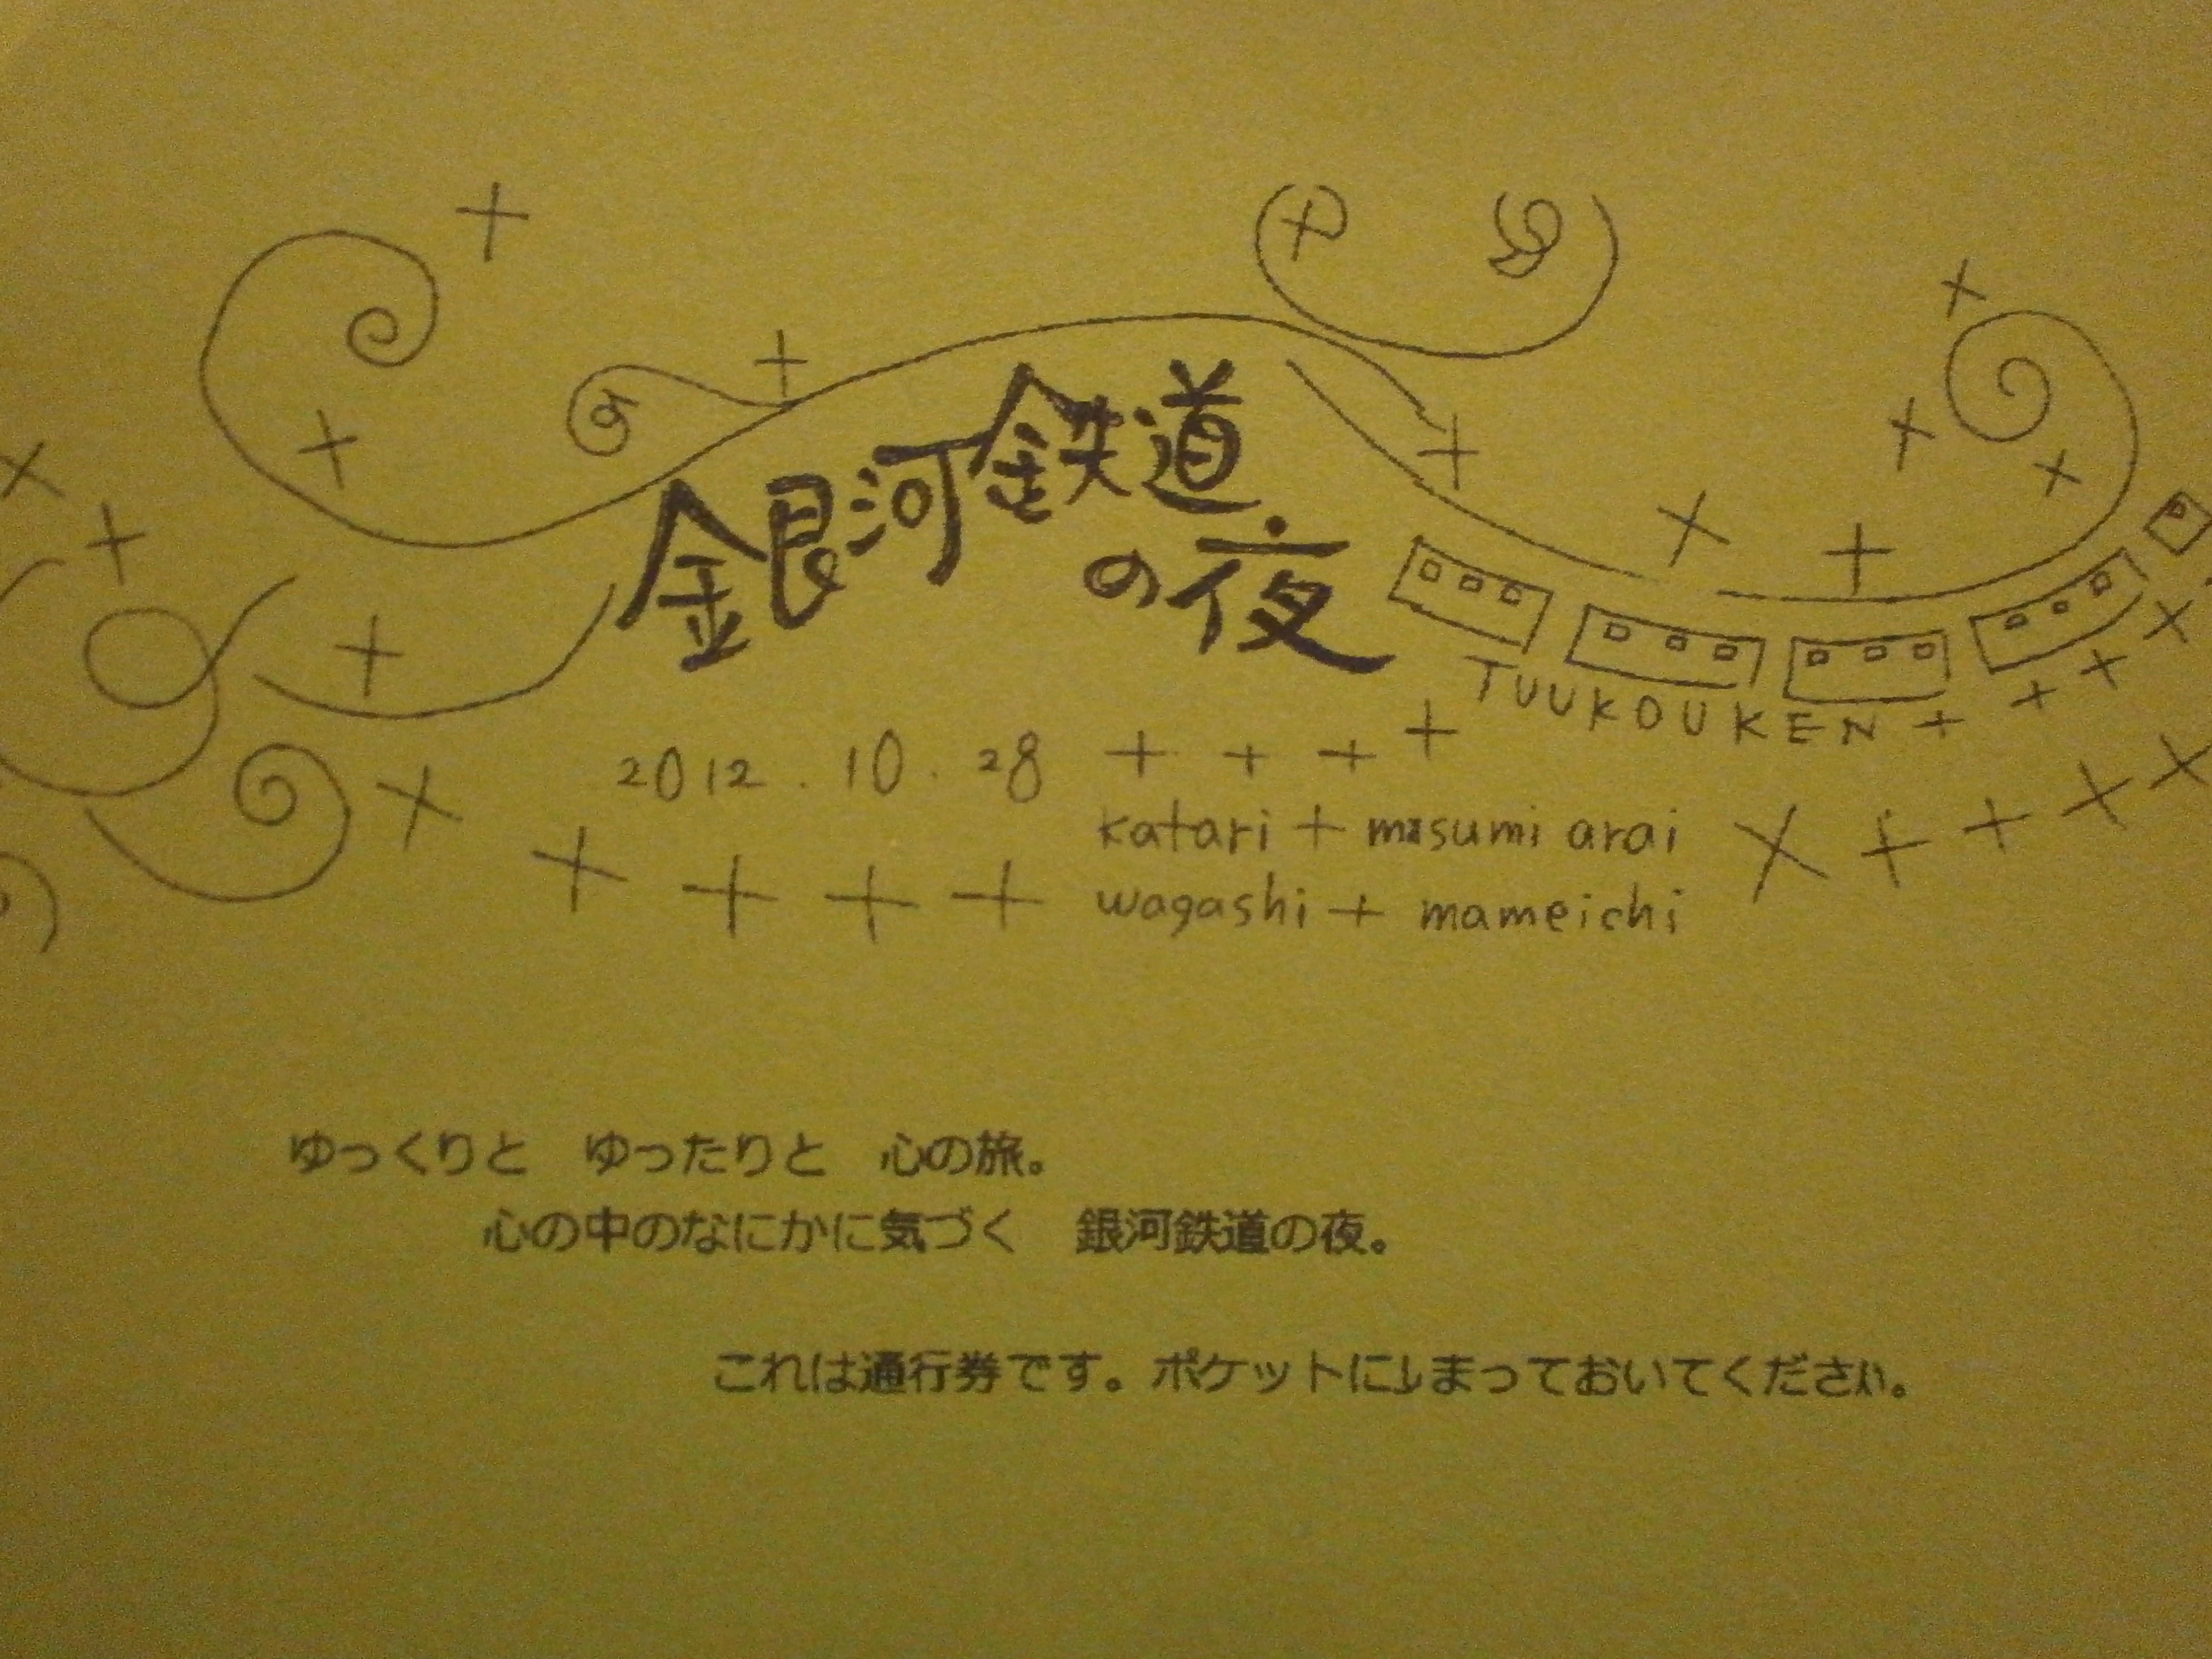 銀河鉄道
の夜
TUUKOUKEN
2012.10.28
katari + masumi arai
wagashi + mameichi
ゆっくりと ゆったりと 心の旅。
心の中のなにかに気づく 銀河鉄道の夜。
これは通行券です。ポケットにしまっておいてください。